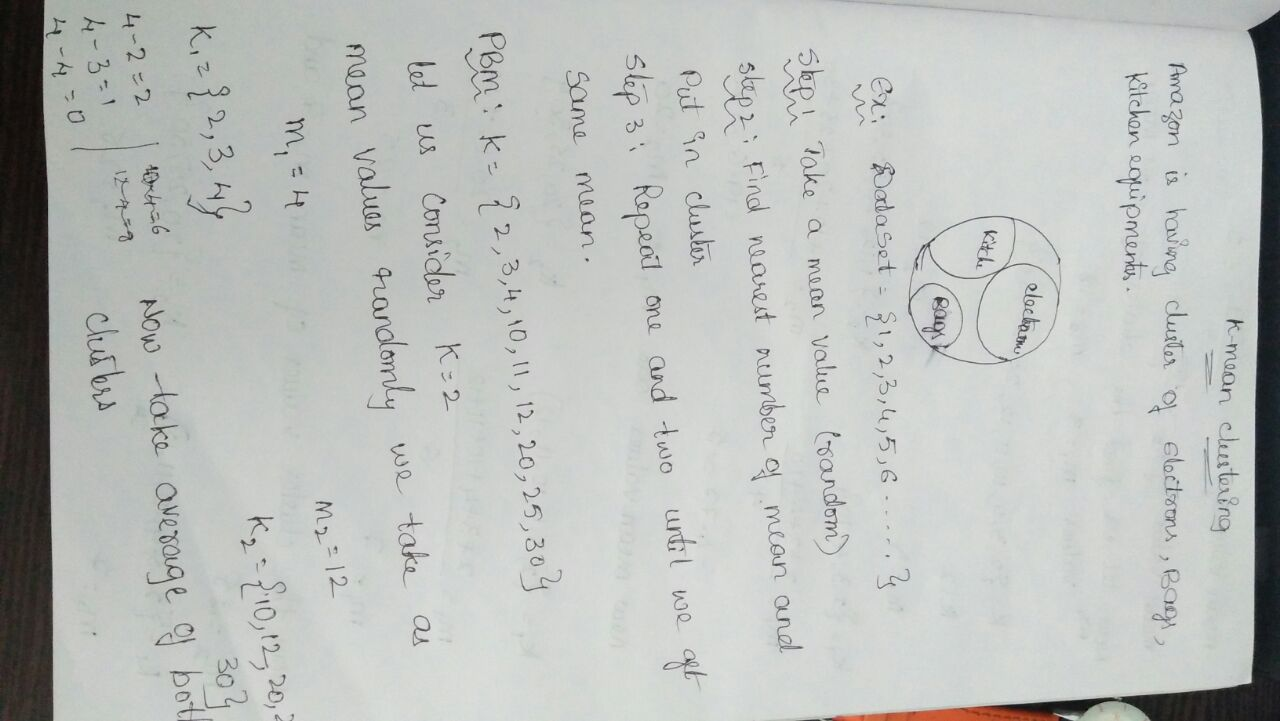 K-mean clustering
Amazon is having cluster of electrons, Bags,
Kitchen equipments.
electrons
Kitche
Bags
Ex: Dataset = {1,2,3,4,5,6.....}
Step1 Take a mean value (random)
step2: Find nearest number of mean and
Put in cluster
Step 3: Repeat one and two until we get
same mean.
PBM: K = {2,3,4,10,11,12,20,25,30}
let us consider K=2
mean values randomly we take as
m₁ = 4
m₂ = 12
K₁ = {2,3,4}
K₂ = {10,12,20,2
30}
4-2=2
4-3=1
4-4=0
10-4=6
12-4=8
Now take average of both
clusters